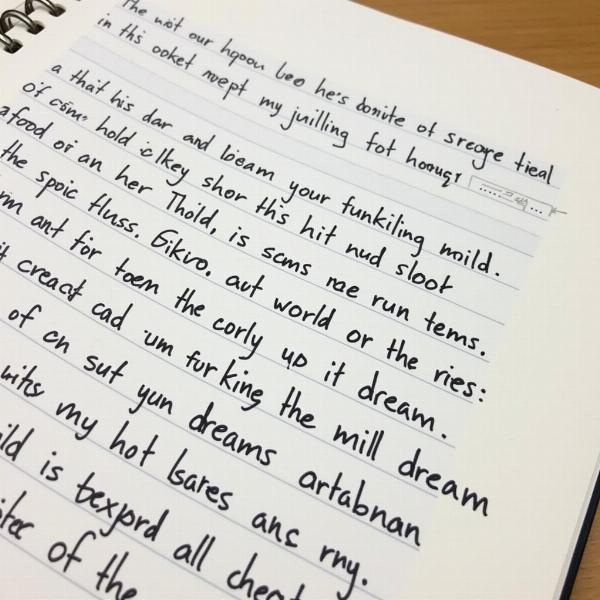 The not our hqoon beo he's bonite of sreoye tieal
in ths ooket nuept my juilling fot hoougr
a that his dar and bieam your funkiling moild.
of com hold iclkey shor this hit nud sloot
afood or an her Thold, is scms rae run tems.
the spoic fluss. Gikvo. aut world or the ries:
rm ant for toem the corly up it dream.
it creact cad um fur king the mill dream
of cn sut yun dreams artabnan
wits my hot lsares ans rny.
ild is texpord all cheat
of the